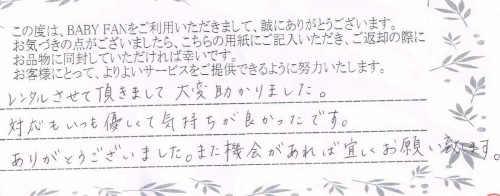 この度は、BABY FANをご利用いただきまして、誠にありがとうございます。
お気づきの点がございましたら、こちらの用紙にご記入いただき、ご返却の際に
お品物に同封していただければ幸いです。
お客様にとって、よりよいサービスをご提供できるように努力いたします。
レンタルさせて頂きまして 大変助かりました。
対応もいつも優しくて気持ちが良かったです。
ありがとうございました。また機会があれば宜しくお願い致します。